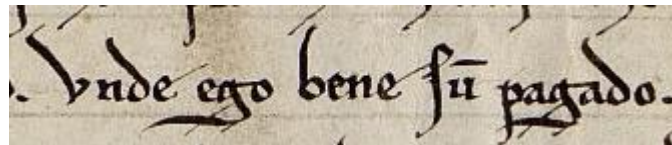 . vnde ego bene sū pagado.